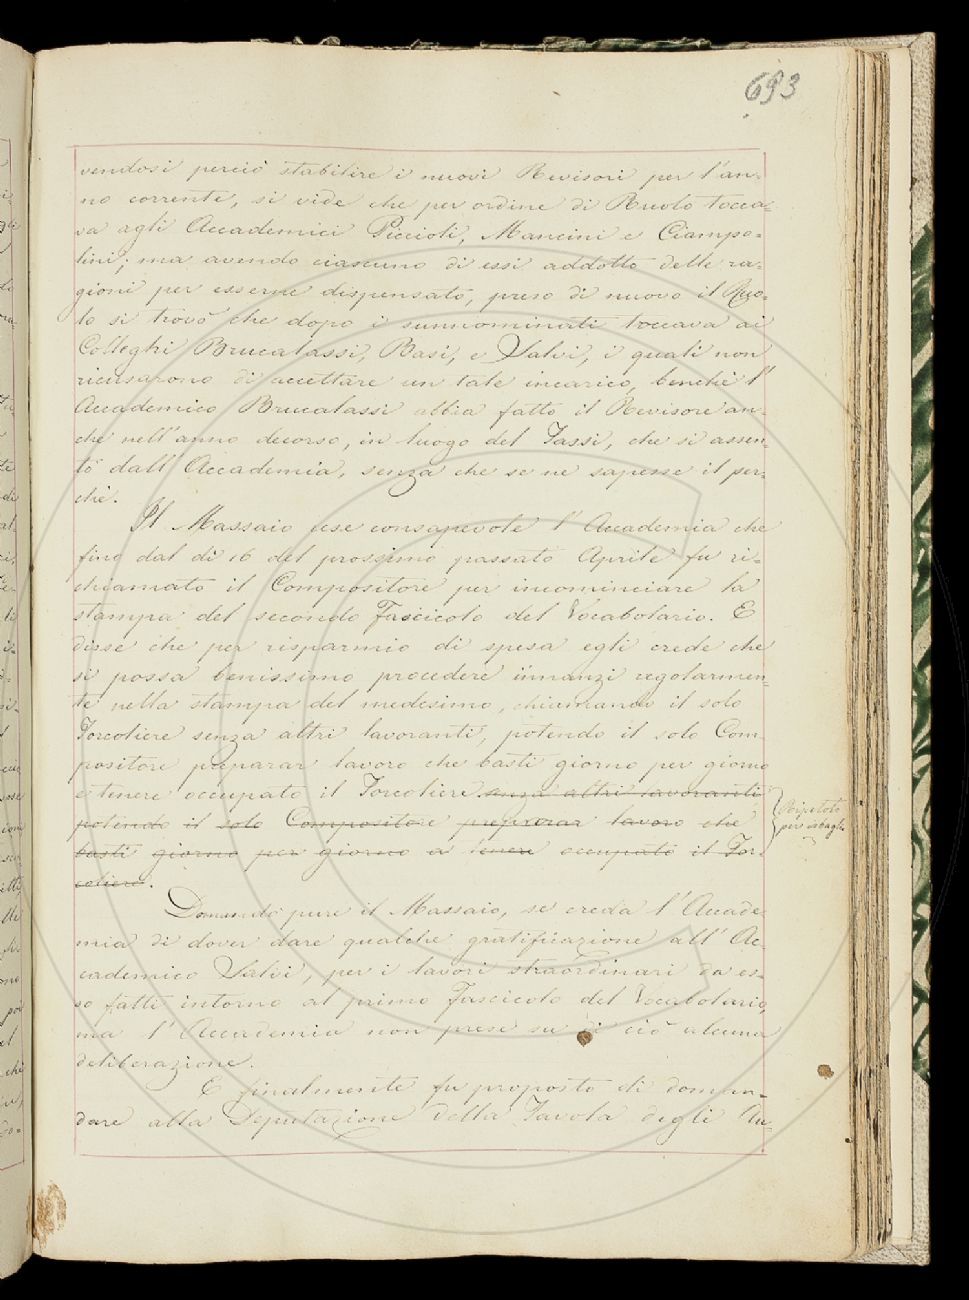 693
vendosi perciò stabilire i nuovi Revisori per l'an-
no corrente, si vide che per ordine di Ruolo tocca-
va agli Accademici Piccioli, Mancini e Ciampo-
lini; ma avendo ciascuno di essi addotto delle ra-
gioni per esserne dispensato, preso di nuovo il Ruo-
lo si trovò che dopo i sunnominati toccava ai
Colleghi Brucalassi, Basi, e Salvi, i quali non
ricusarono di accettare un tale incarico, benchè l'
Accademico Brucalassi abbia fatto il Revisore an-
che nell'anno decorso, in luogo del Tassi, che si assen-
tò dall'Accademia, senza che se ne sapesse il per-
chè.
Il Massaio fese consapevole l'Accademia che
fino dal dì 16 del prossimo passato Aprile fu ri-
chiamato il Compositore per incominciare la
stampa del secondo Fascicolo del Vocabolario. E
disse che per risparmio di spesa egli crede che
si possa benissimo procedere innanzi regolarmen-
te nella stampa del medesimo, chiamando il solo
Torcoliere senza altri lavoranti, potendo il solo Com-
positore preparar lavoro che basti giorno per giorno
a tenere occupato il Torcoliere senza altri lavoranti
potendo il solo Compositore preparar lavoro che
basti giorno per giorno a tenere occupato il Tor-
coliere.
Ripetuto
per isbaglio
Domandò pure il Massaio, se creda l'Accade-
mia di dover dare qualche gratificazione all'Ac-
cademico Salvi, per i lavori straordinari da es-
so fatti intorno al primo Fascicolo del Vocabolario,
ma l'Accademia non prese su di ciò alcuna
deliberazione.
E finalmente fu proposto di doman-
dare alla Deputazione della Tavola degli Au-